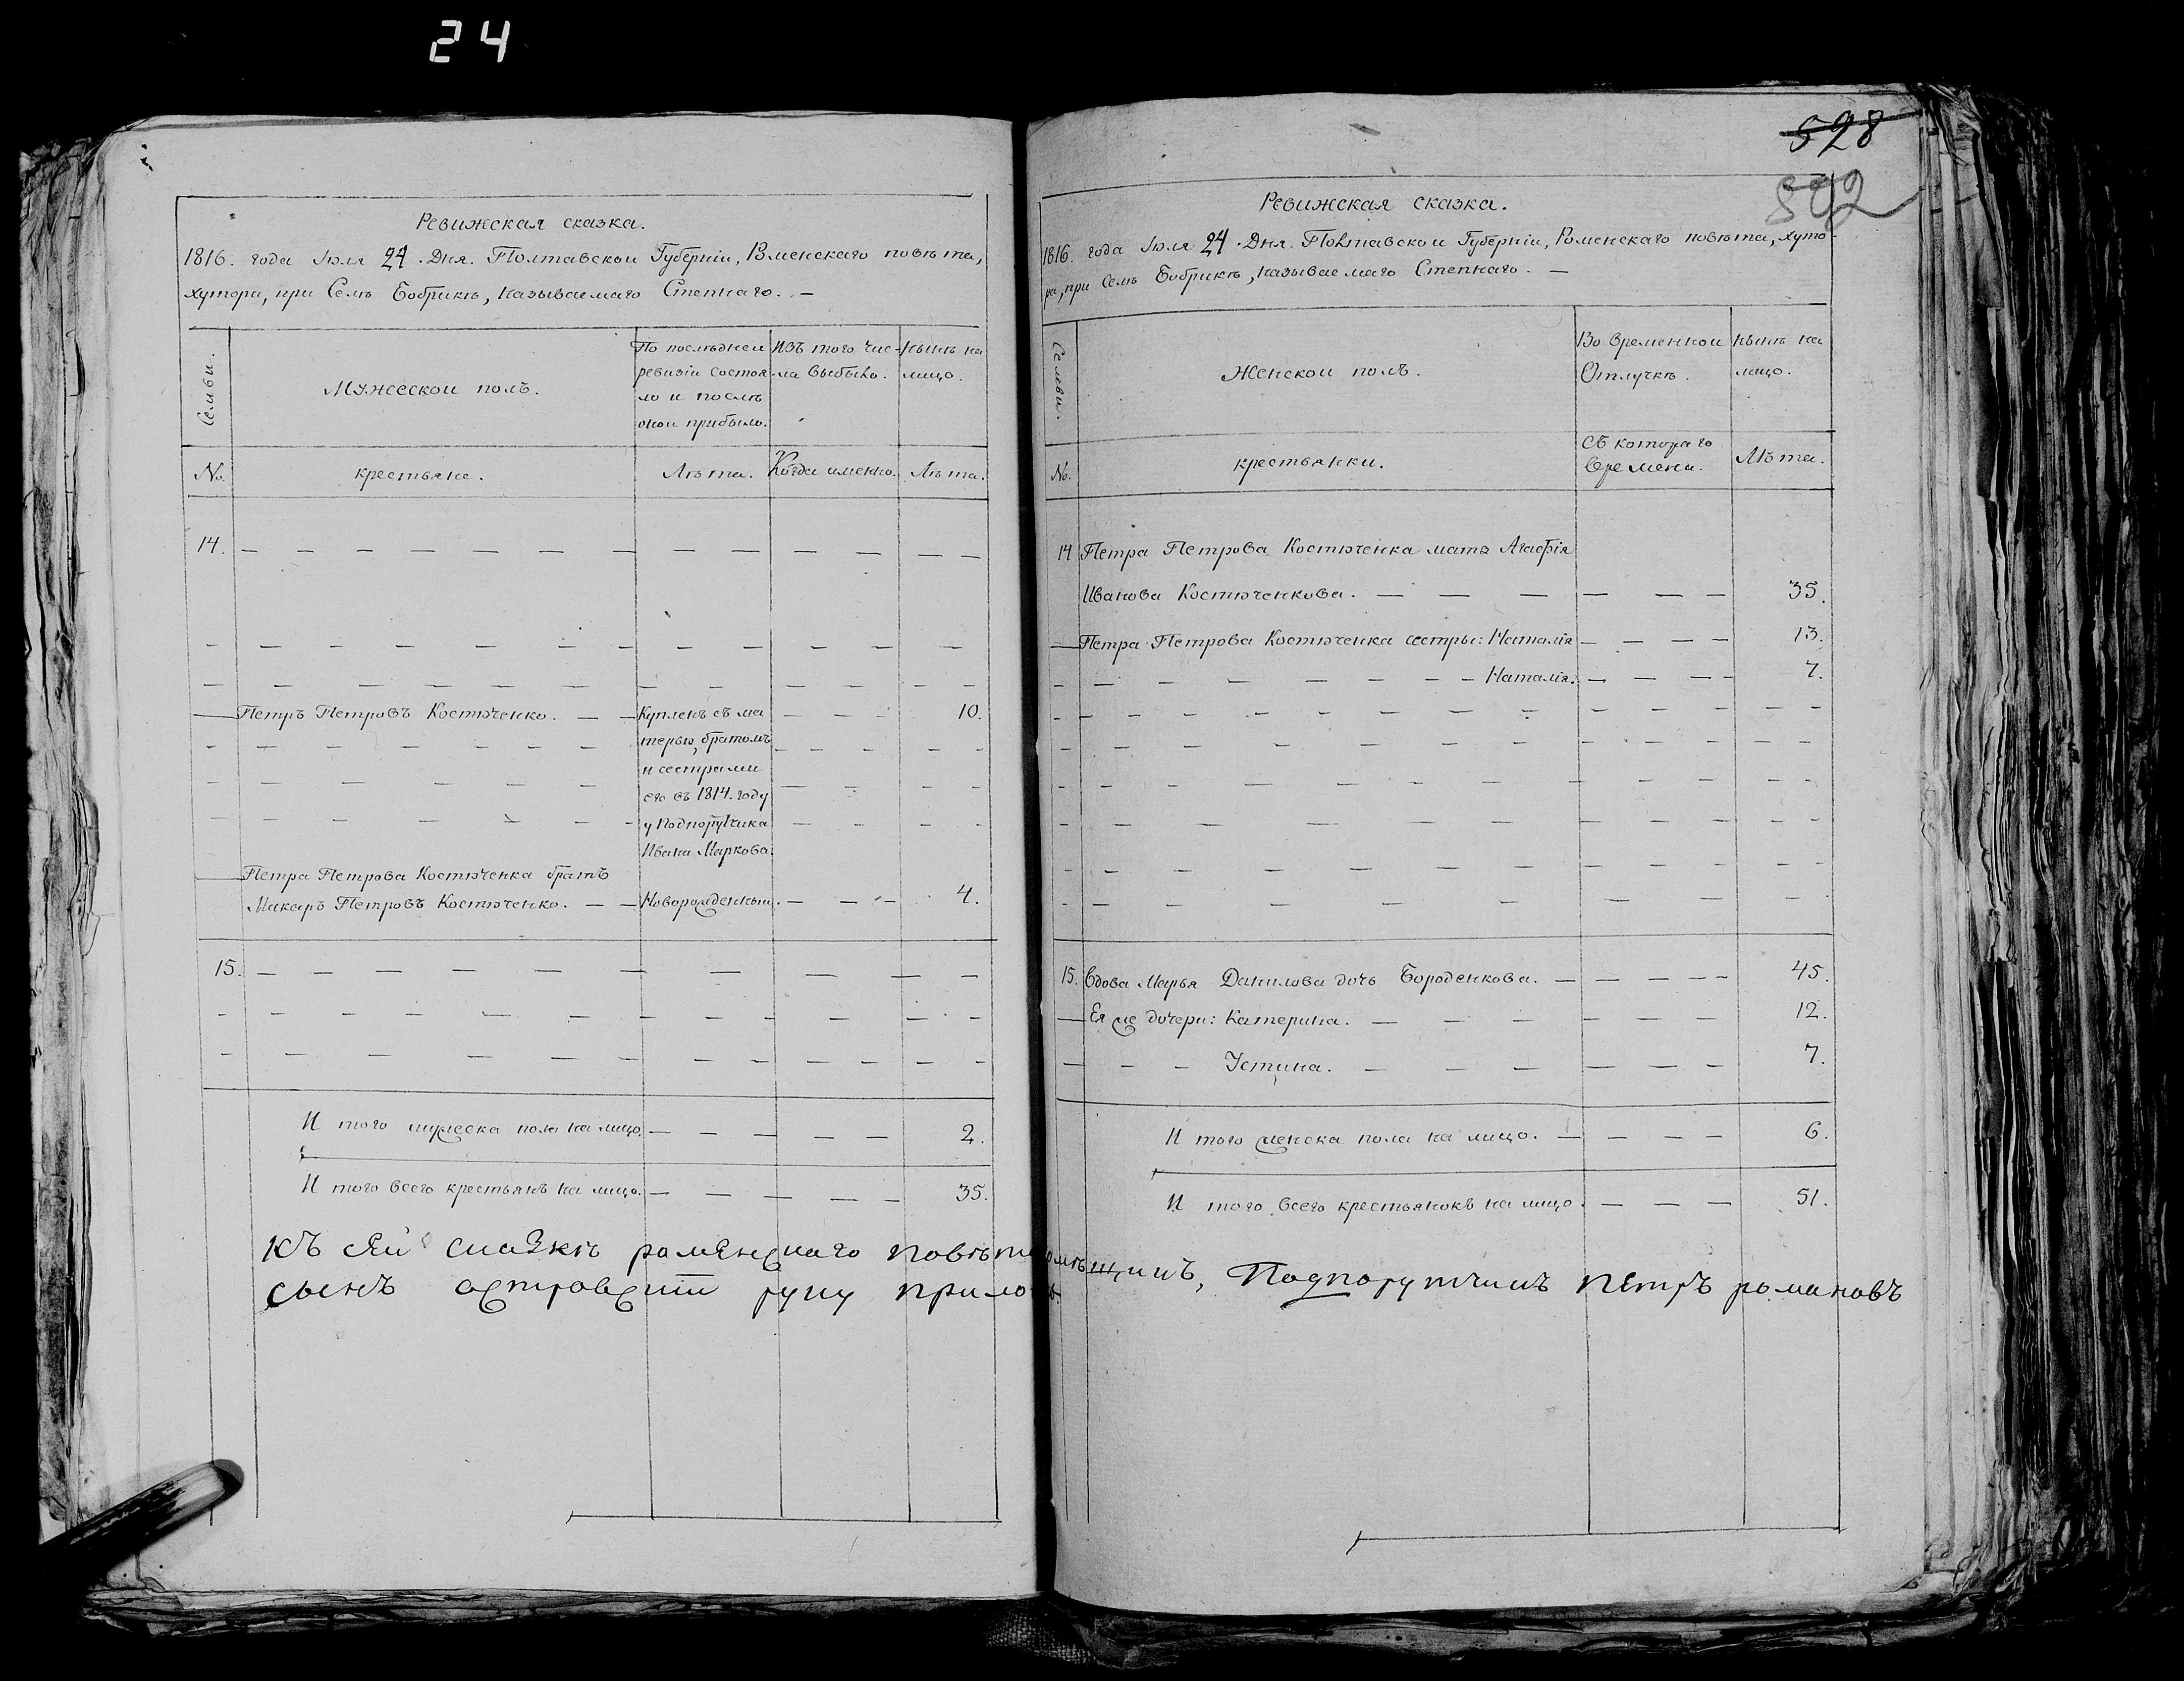 24
Ревижская сказка.
1816. года Іюля 24. Дня. Полтавскои Губерніи, Роменскаго повѣта,
хутора, при Селѣ Бобрикѣ, называемаго Степнаго. —
Семьи.
Мужескои полъ.
По послѣднеи
ревизіи состоя-
ло и послѣ
онои прибыло.
Изъ того чис-
ла выбыло.
Нынѣ на
лицо.
No.
крестьяне.
Лѣта.
Когда именно.
Лѣта.
14.
Петръ Петровъ Костюченко. — — Купленъ съ ма — — — 10.
терью, братомъ
и сестрами
его въ 1814. году
у Подпорутчика
Ивана Маркова.
Петра Петрова Костюченка братъ
Макаръ Петровъ Костюченко. — — Новорожденныи. — — — 4.
15.
И того мужеска пола на лицо. — — — — — 2.
И того всего крестьянъ на лицо. — — — — — 35.
528
502
Ревижская сказка.
1816. года Іюля 24. Дня. Полтавскои Губерніи, Роменскаго повѣта, хуто-
ра, при Селѣ Бобрикѣ, называемаго Степнаго. —
Семьи.
Женскои полъ.
Во временнои
Отлучкѣ.
Нынѣ на
лицо.
No.
крестьянки.
Съ котораго
времени.
Лѣта.
14 Петра Петрова Костюченка мать Агафія
Иванова Костюченкова. — — — — — — 35.
Петра Петрова Костюченка сестры: Наталія — — — — 13.
Наталія. — — — — 7.
15. Вдова Марья Данилова дочь Бороденкова. — — — — — 45.
Ея же дочери: Катерина. — — — — — — — 12.
Устина. — — — — — — — 7.
И того женска пола на лицо. — — — — — 6.
И того всего крестьянокъ на лицо. — — — — 51.
Къ сей сказкѣ роменскаго повѣта помѣщикъ, Подпорутчикъ Петръ романовъ
сынъ островский руку приложилъ